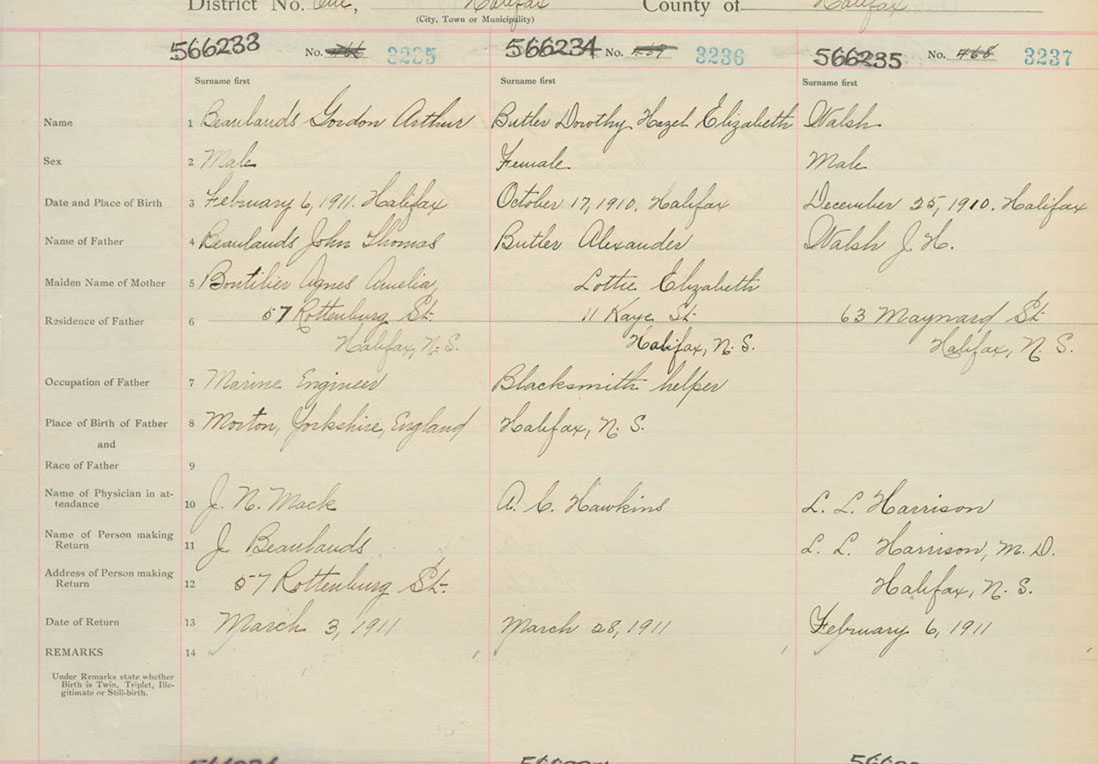 District No. One, Halifax County of Halifax
(City, Town or Municipality)
566233 No. 3235 566234 No. 3236 566235 No. 468 3237
Surname first Surname first Surname first
Name 1 Beaulands Gordon Arthur Butler Dorothy Hazel Elizabeth Walsh
Sex 2 Male Female Male
Date and Place of Birth 3 February 6, 1911. Halifax October 17, 1910. Halifax December 25, 1910. Halifax
Name of Father 4 Beaulands John Thomas Butler Alexander Walsh J. H.
Maiden Name of Mother 5 Boutilier Agnes Amelia, Lottie Elizabeth
Residence of Father 6 57 Rottenburg St. 11 Kaye St. 63 Maynard St.
Halifax, N.S. Halifax, N.S. Halifax, N.S.
Occupation of Father 7 Marine Engineer Blacksmith helper
Place of Birth of Father 8 Morton, Yorkshire, England Halifax, N.S.
and
Race of Father 9
Name of Physician in at-
tendance 10 J. N. Mack A. C. Hawkins L. L. Harrison
Name of Person making
Return 11 J Beaulands L. L. Harrison, M.D.
Address of Person making
Return 12 57 Rottenburg St. Halifax, N.S.
Date of Return 13 March 3, 1911 March 28, 1911 February 6, 1911
REMARKS 14
Under Remarks state whether
Birth is Twin, Triplet, Ille-
gitimate or Still-birth.